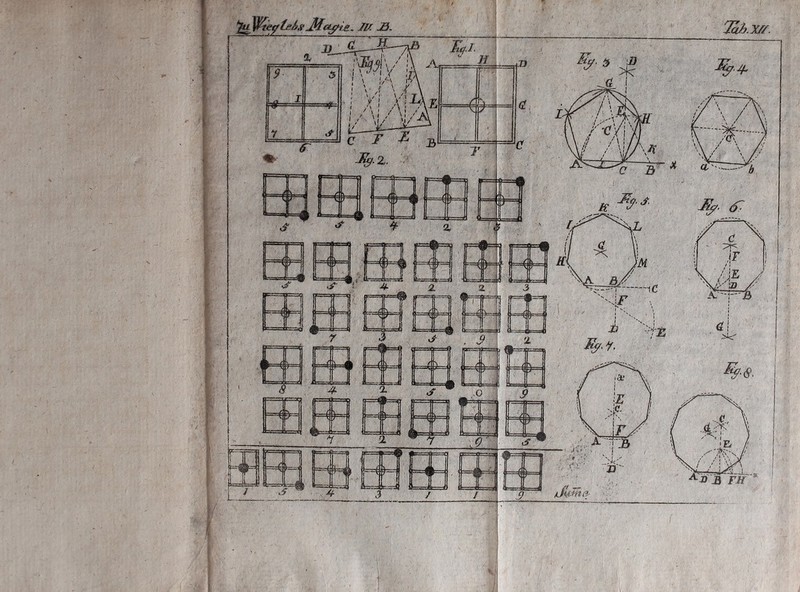 Zu Wieglebs Magie. IV. B.
Tab. XII.
D G H B
Fig. 9
I
L
A
C F E
2
9 3
8 1 4
7 5
6
Fig. 1.
A H D
E G
B F C
Fig. 2.
5 5 4 2 3
5 5 4 2 2 3
7 3 5 9 2
8 4 2 5 0 9
7 2 7 9 5
1 5 4 3 1 1 9
Suma
Fig. 3
D
G
I E H
C
K
A C B X
Fig. 4
C
a b
Fig. 5.
K
I L
G
H M
A B
C
F
D
E
Fig. 6.
C
F
E
D
A B
G
Fig. 7.
x
E
c
F
A B
D
Fig. 8.
C
G
E
A D B F H